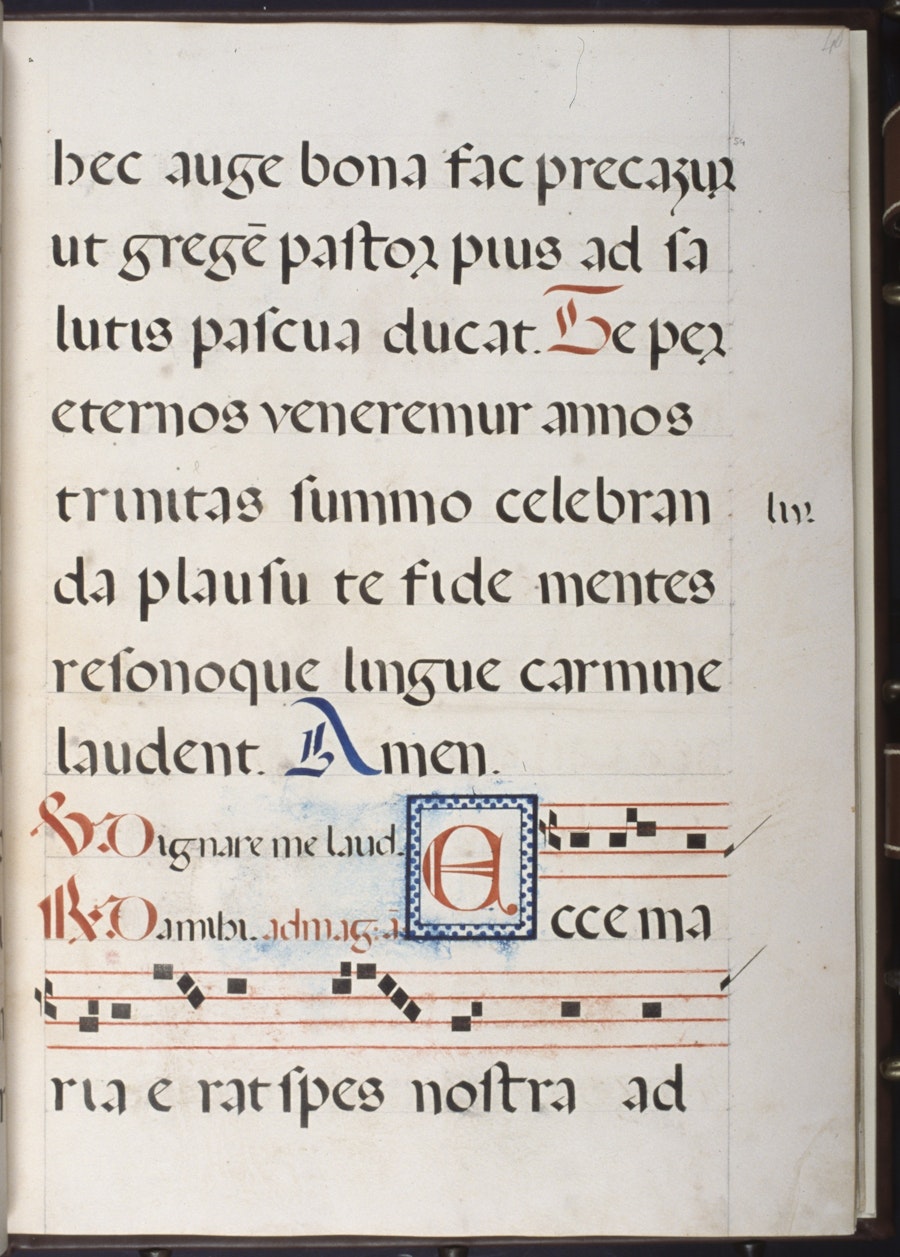 hec auge bona fac precaʒur
ut gregē paſtoꝛ pius ad ſa
lutis paſcua ducat. Te peꝛ
eternos veneremur annos
trinitas ſummo celebran
liv.
da plauſu te fide mentes
reſonoque lingue carmine
laudent. Amen.
℣. Dignare me laud.
℟. Da mihi. ad mag: ā
Ecce ma
ria e rat ſpes noſtra ad